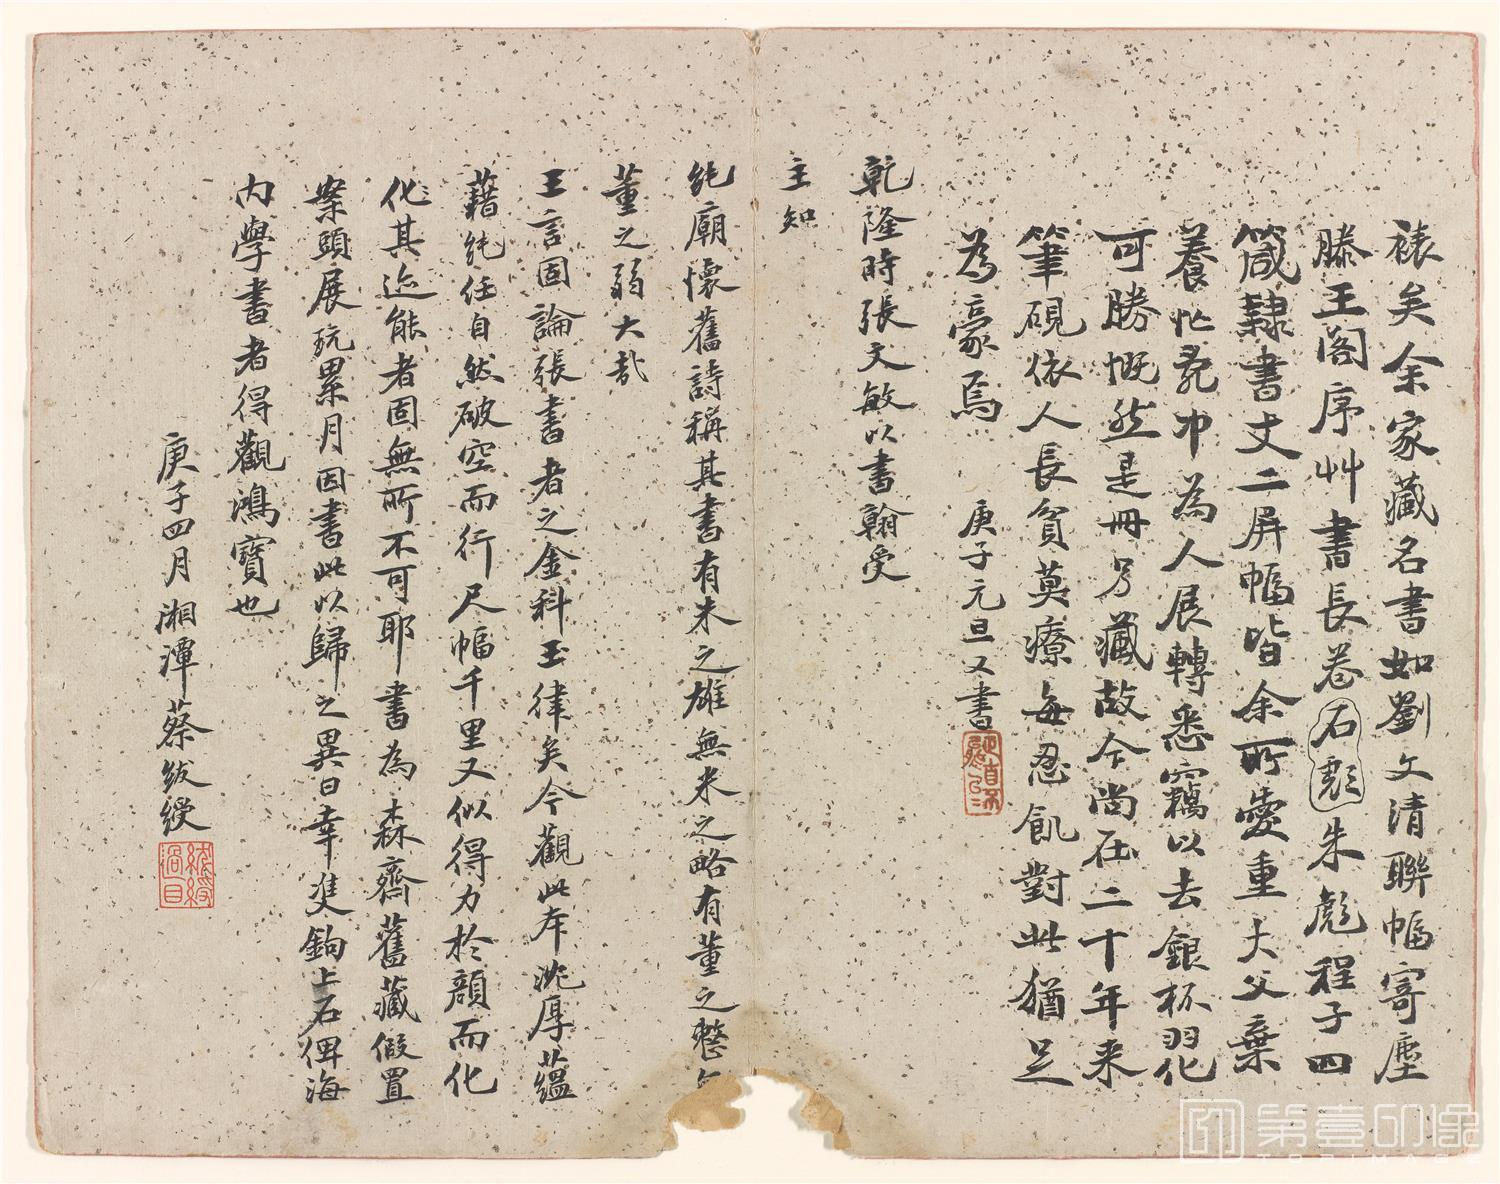 裱矣余家藏名書如劉文清聯幅寄塵
滕王閣序艸書長卷石刻朱彪程子四
箴隸書丈二屏幅皆余所愛重大父棄
養忙亂中為人展轉悉竊以去銀杯羽化
可勝慨然是冊另藏故今尚在二十年來
筆硯依人長貧莫療每忍飢對此猶足
為豪焉 庚子元旦又書
乾隆時張文敏以書翰受
主知
純廟懷舊詩稱其書有米之雄無米之略有董之整無
董之弱大哉
王言固論張書者之金科玉律矣今觀此本沈厚蘊
藉純任自然破空而行尺幅千里又似得力於顏而化
化其迹能者固無所不可耶書為森齋舊藏假置
案頭展玩累月因書此以歸之異日幸雙鉤上石俾海
內學書者得觀鴻寶也
庚子四月湘潭蔡紱綬
紱綬過目
第壹印像
TOPIMAGE